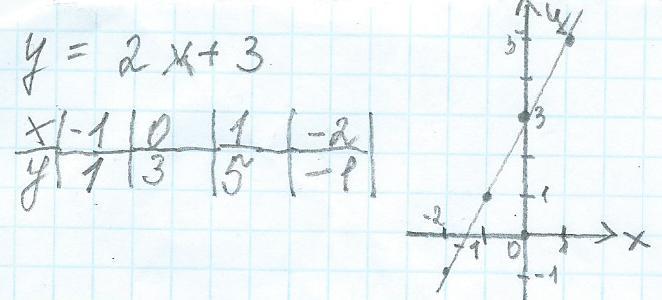 y = 2x + 3
x | -1 | 0 | 1 | -2 |
y | 1 | 3 | 5 | -1 |
y
5
3
1
-2 -1 0 1 x
-1